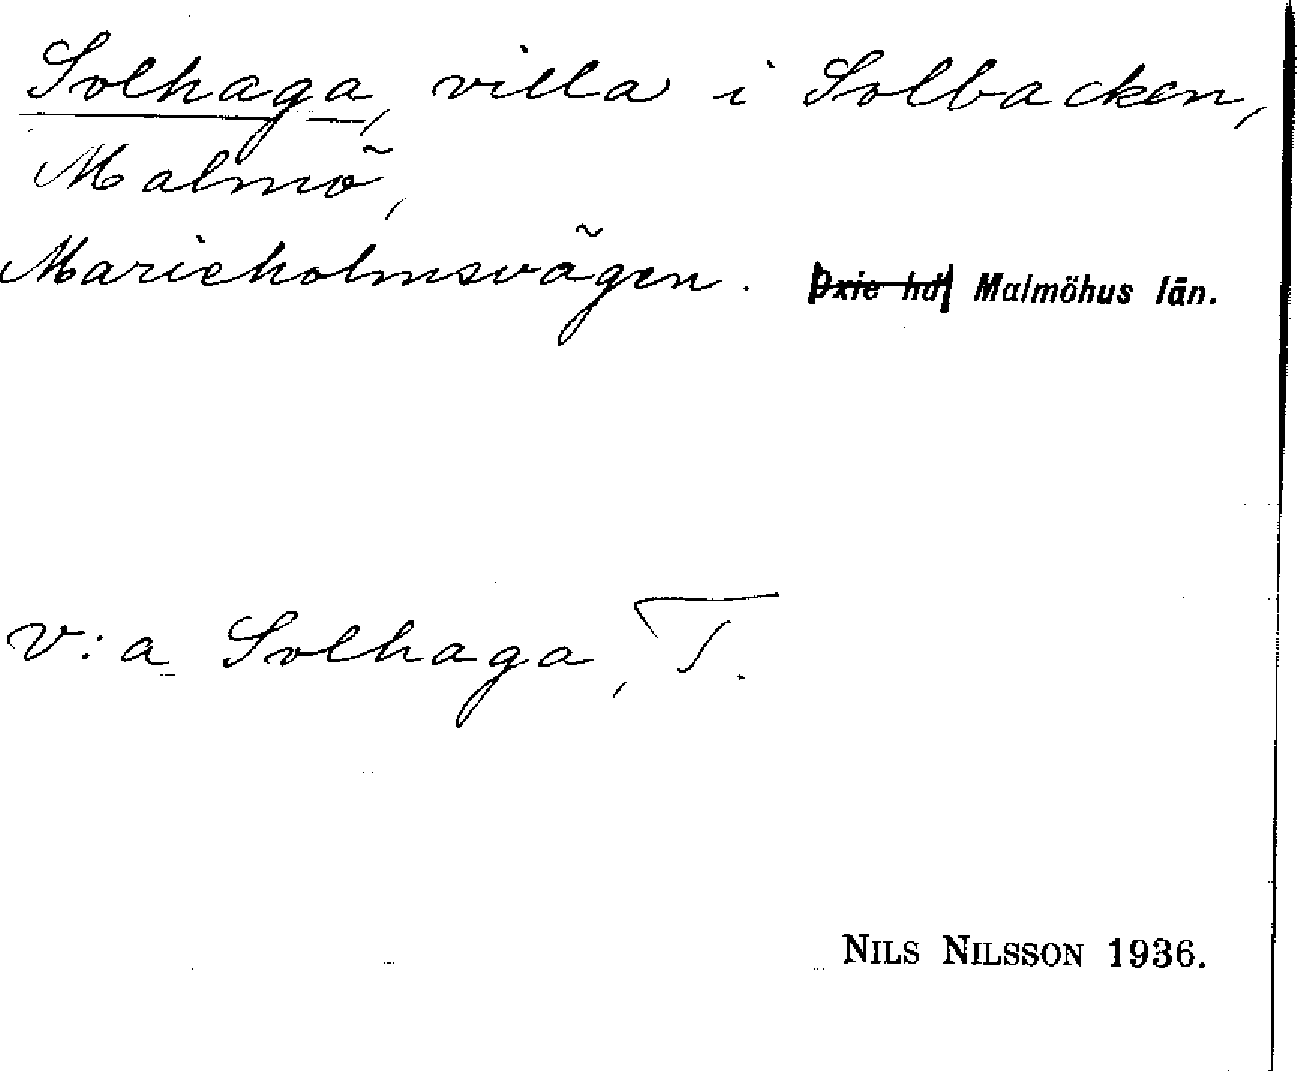 Solhaga, villa i Solbacken,
Malmö,
Marieholmsvägen. Oxie hd Malmöhus län.
V:a Solhaga, T.
NILS NILSSON 1936.